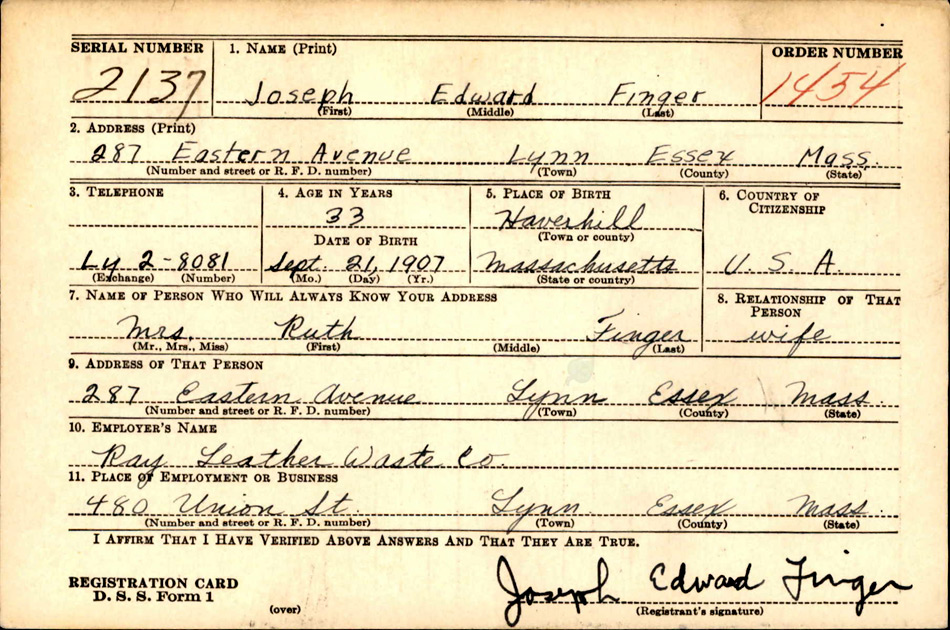 SERIAL NUMBER 1. NAME (Print) ORDER NUMBER
2137 Joseph Edward Finger 1454
(First) (Middle) (Last)
2. ADDRESS (Print)
287 Eastern Avenue Lynn Essex Mass.
(Number and street or R. F. D. number) (Town) (County) (State)
3. TELEPHONE 4. AGE IN YEARS 5. PLACE OF BIRTH 6. COUNTRY OF CITIZENSHIP
33 Haverhill
(Town or county)
DATE OF BIRTH
Ly 2-8081 Sept. 21, 1907 Massachusetts U. S. A.
(Exchange) (Number) (Mo.) (Day) (Yr.) (State or country)
7. NAME OF PERSON WHO WILL ALWAYS KNOW YOUR ADDRESS 8. RELATIONSHIP OF THAT PERSON
Mrs. Ruth Finger wife
(Mr., Mrs., Miss) (First) (Middle) (Last)
9. ADDRESS OF THAT PERSON
287 Eastern Avenue Lynn Essex Mass.
(Number and street or R. F. D. number) (Town) (County) (State)
10. EMPLOYER'S NAME
Ray Leather Waste Co.
11. PLACE OF EMPLOYMENT OR BUSINESS
480 Union St. Lynn Essex Mass.
(Number and street or R. F. D. number) (Town) (County) (State)
I AFFIRM THAT I HAVE VERIFIED ABOVE ANSWERS AND THAT THEY ARE TRUE.
REGISTRATION CARD
D. S. S. Form 1
(over)
Joseph Edward Finger
(Registrant's signature)